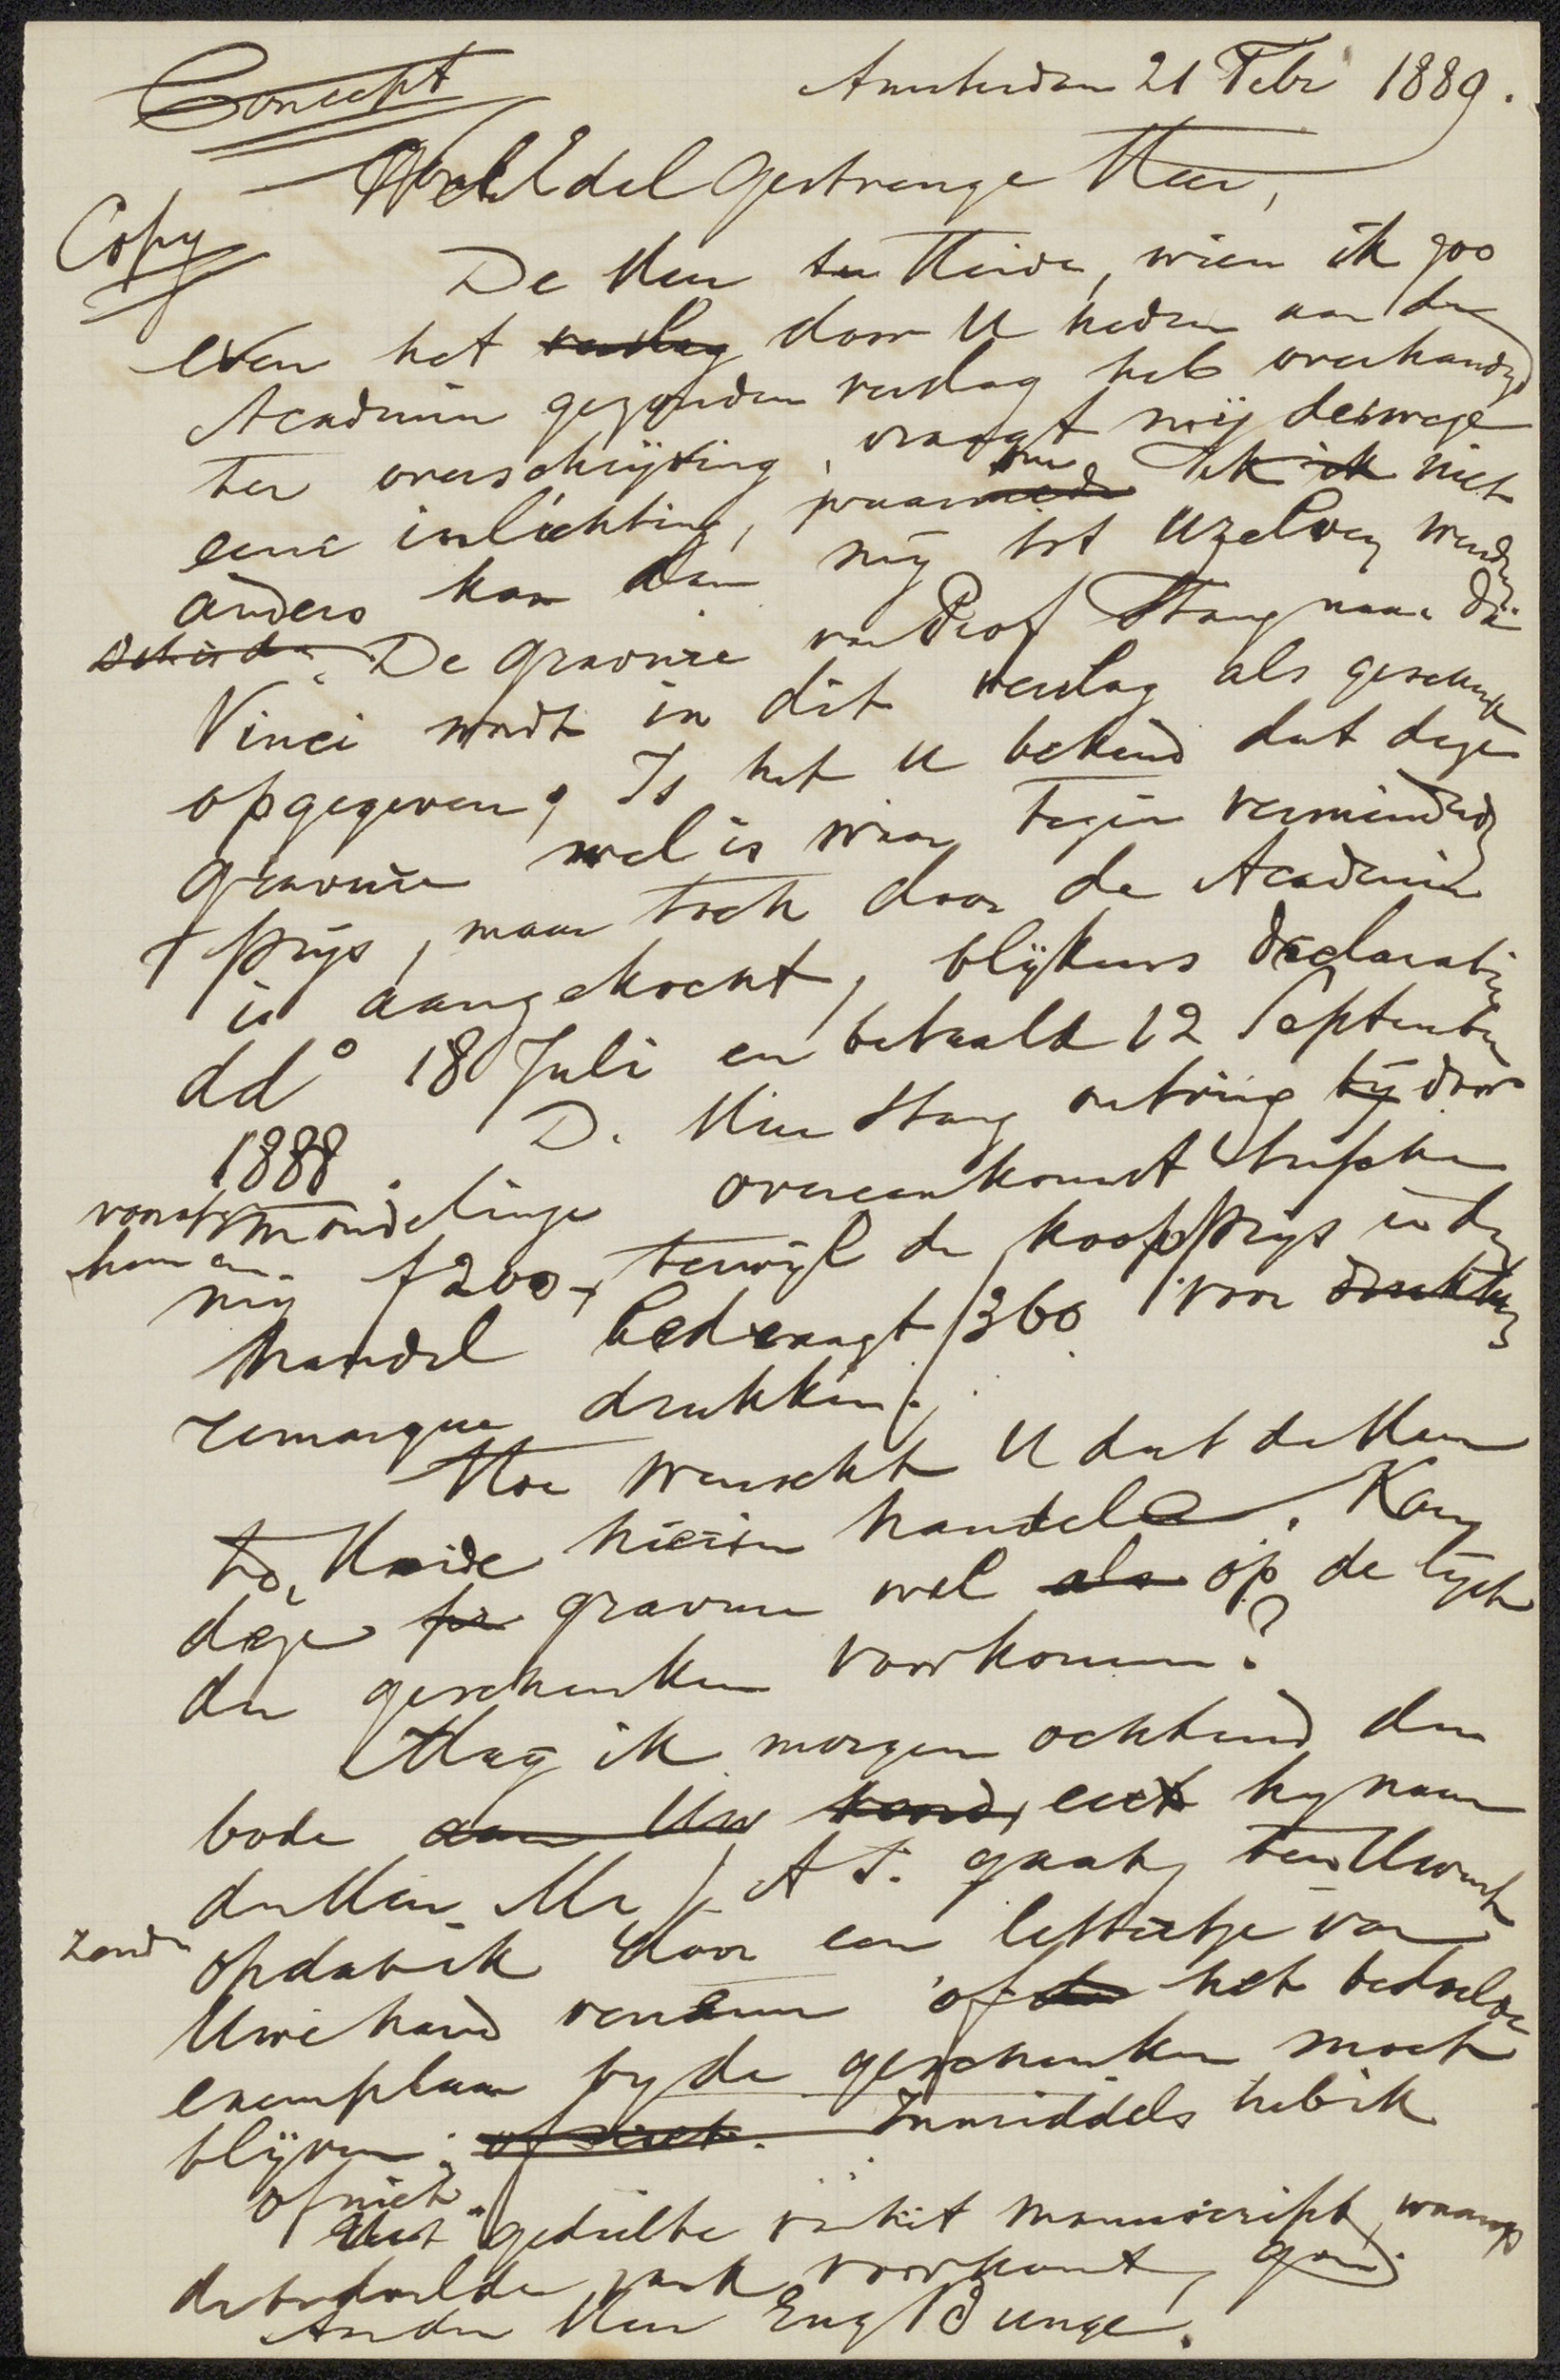 Concept
Amsterdam 21 Febr 1889.
WelEdel Gestrenge Heer,
Copy
De Heer ter Heide, wien ik zoo
even het verslag door U heden aan de
Academie gezonden verslag heb overhandigd
ter overschrijving, vraagt mij deswege
eene inlichting, waarmede ik ik niet
om
anders kan dan mij tot Uzelven wenden
De gravure van Prof Stang naar Da
Vinci wordt in dit verslag als geschenk
opgegeven, Is het U bekend dat deze
gravure wel is waar tegen verminderden
prijs, maar toch door de Academie
is aangekocht, blijkens declaratie
dd° 18 Juli en betaald 12 September
1888. De Heer Stang ontving bij door
mondelinge overeenkomst tusschen
hem en
mij f 200-, terwijl de koopprijs in den
handel bedraagt f 360. voor drukken
remarque drukken.
Hoe wenscht U dat de Heer
ter Heide hierin handele. Kan
deze gravure wel als op de lijst
der geschenken voorkomen?
Mag ik morgen ochtend den
bode aan Uw hij naar
den Heer Mr J. A S. gaat, ten Uwent
zenden
opdat ik door een lettertje van
Uwe hand verneme of het bedoelde
exemplaar bij de geschenken moet
blijven; of niet. Inmiddels heb ik
of niet.
Het gedeelte van het manuscript, waarop
de bedoelde zaak voorkomt, gaat
Aan den Heer Eug Bunge.